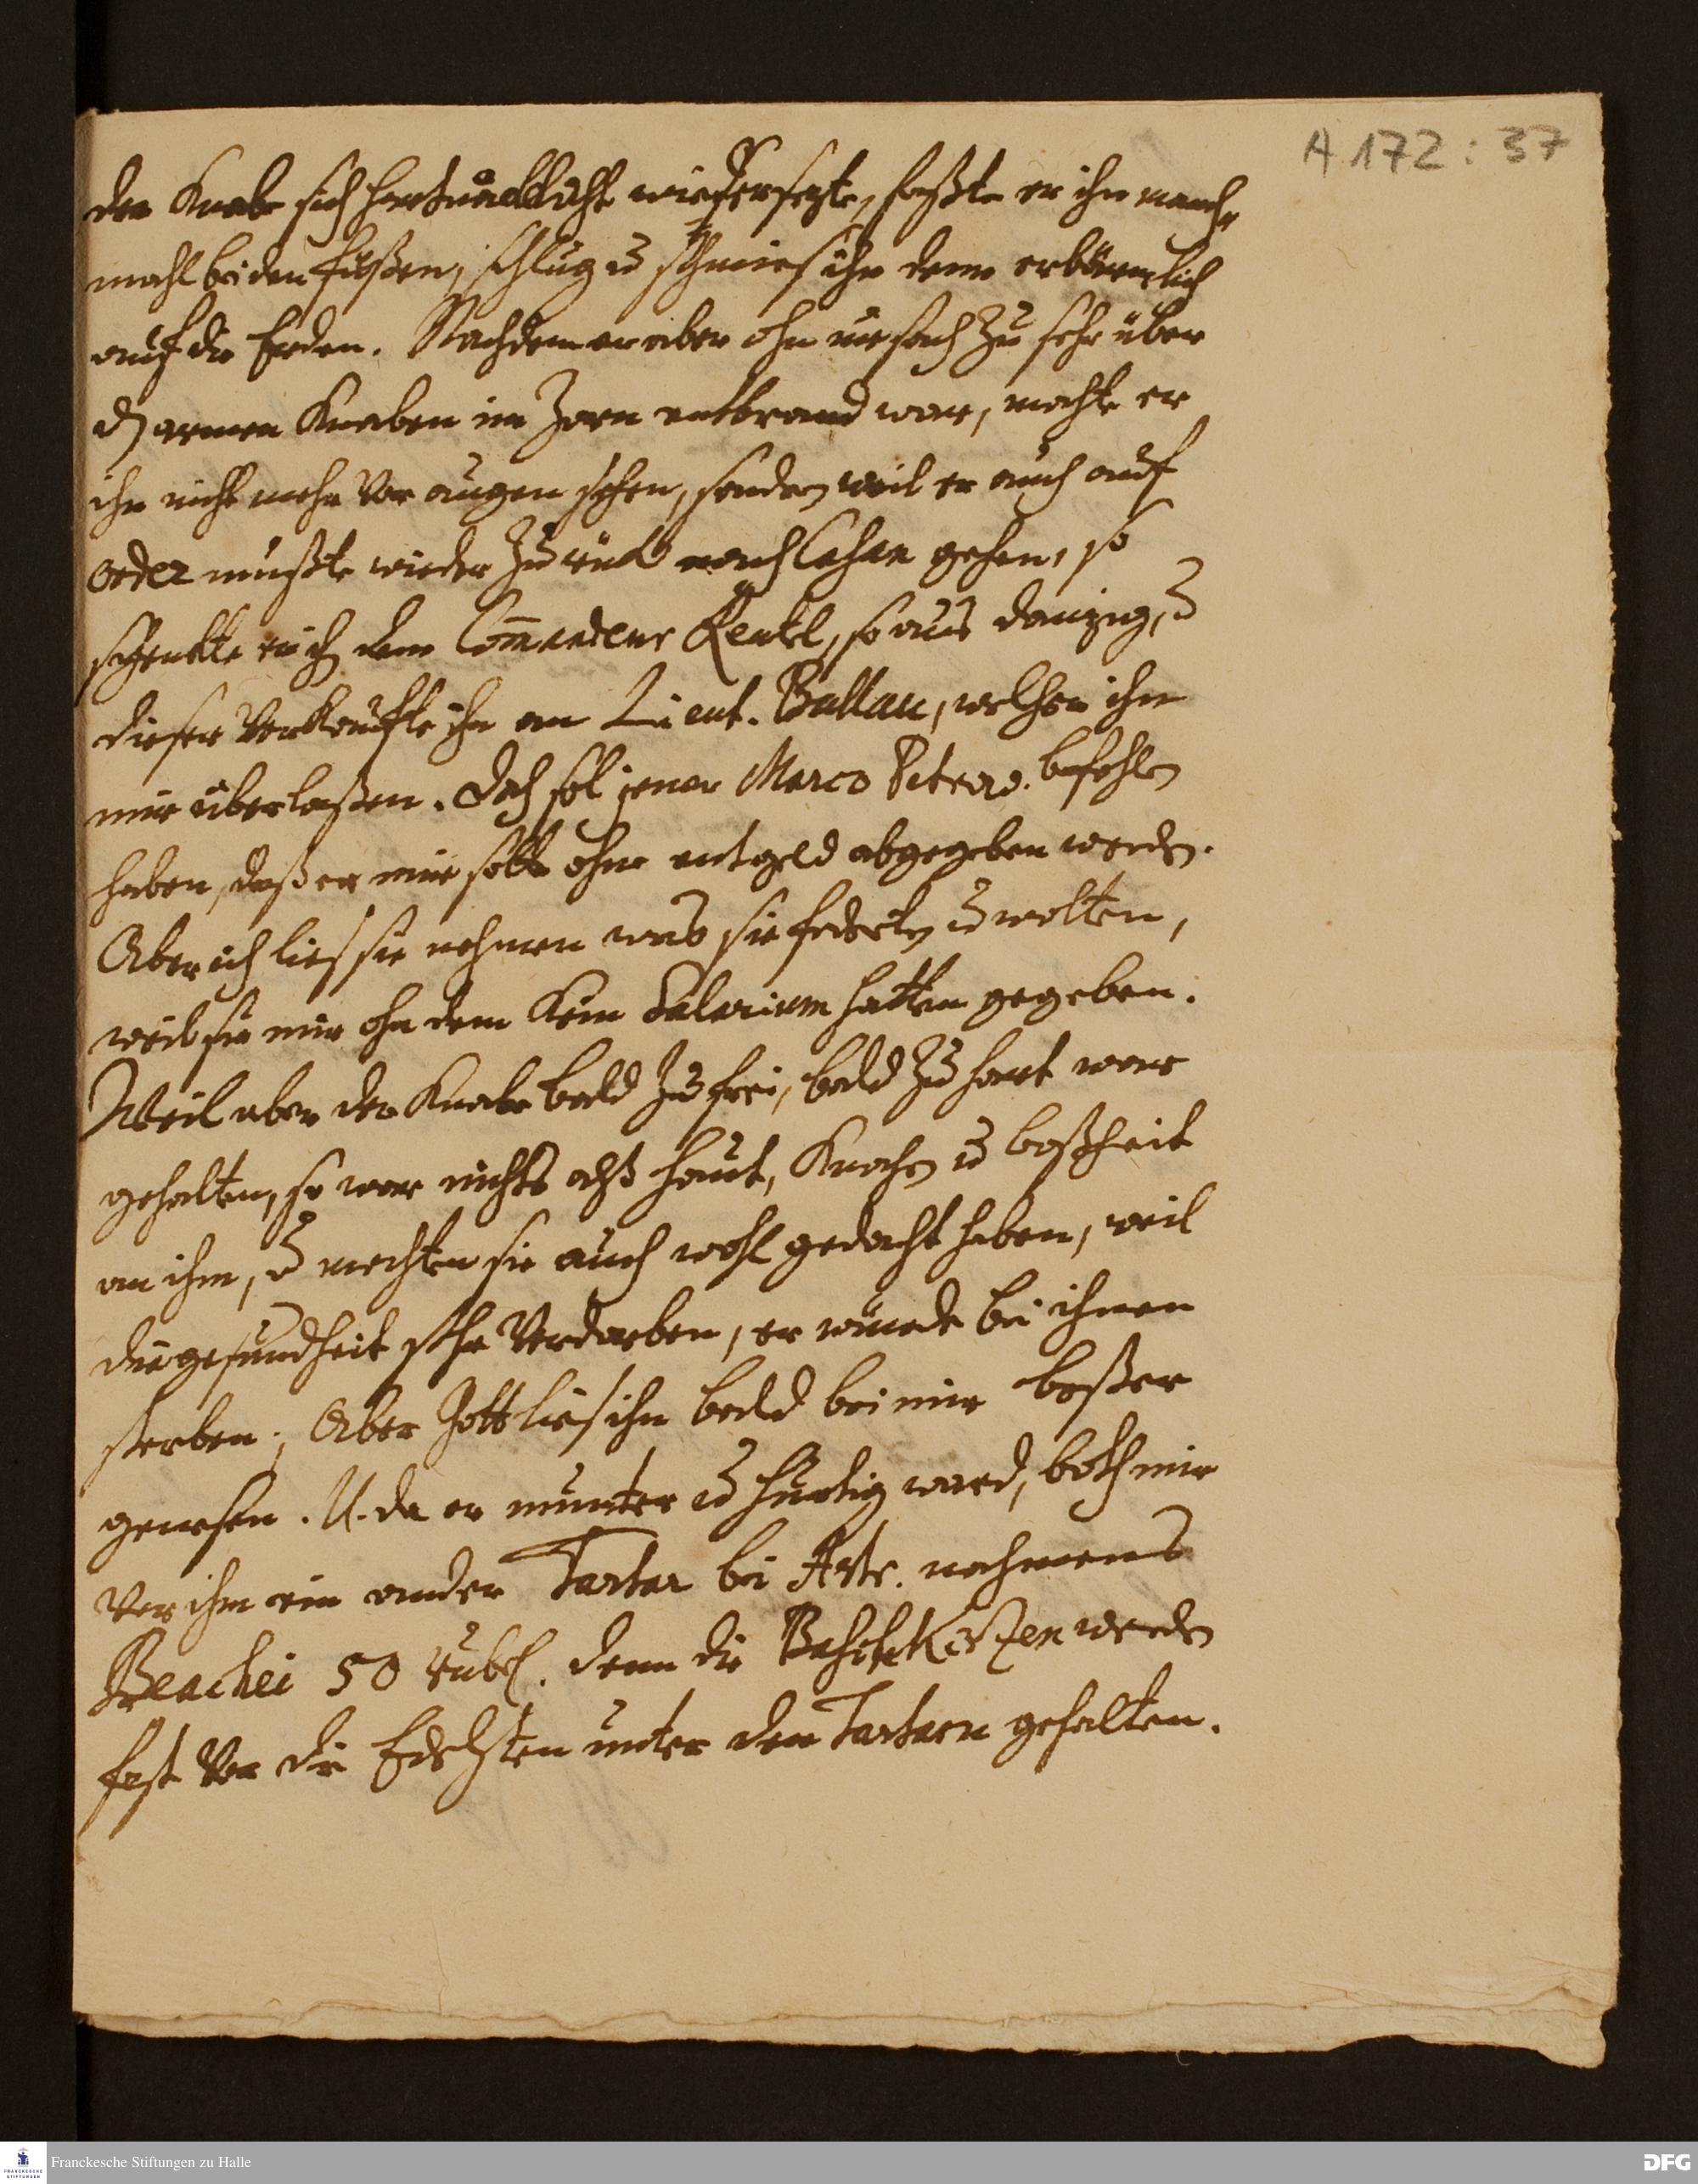 A 172 : 37
der Knabe sich hartnäckicht wiedersezte, faßte er ihn manch-
mahl bei den füßen, schlug u schmies ihn denn erbärmlich
auf die Erden. Nachdem er aber ohn ursach zu sehr über
dH armen Knaben im Zorn entbrand war, mochte er
ihn nicht mehr vor augen sehen, sondern weil er auch auf
order mußte wieder zurück nach Casan gehen, so
schenckte er ihn dem Commandeur Renkel, so aus Danzig, u
dieser verkauffte ihn an Lieut. Bullau, welcher ihn
mir überlaßen. Doch sol jener Marco Petrov. befohlen
haben, daß er mir solte ohne entgeld abgegeben werden.
Aber ich lies sie nehmen was sie foderten u wolten,
weil sie mir ohn dem kein Salarium hatten gegeben.
Weil aber der Knabe bald zu frei, bald zu hart war
gehalten, so war nichts alß haut, Knochen u boßheit
an ihm, u mochten sie auch wohl gedacht haben, weil
die gesundheit sehr verdorben, er würde bei ihnen
sterben; Aber Gott lies ihn bald bei mir beßer
genesen. U. da er munter u hurtig ward, both mir
vor ihm ein ander Tartar bei Astr. nahmens
Beachei 50 rubel. denn die werden
fest vor die Edelsten unter den Tartarn gehalten.
Franckesche Stiftungen zu Halle
FRANCKESCHE STIFTUNGEN
DFG